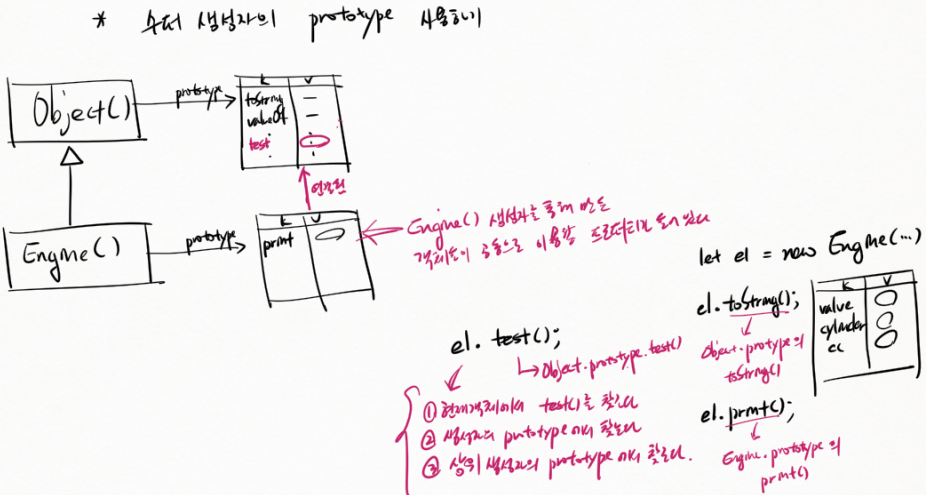 * 수퍼 생성자의 prototype 사용하기
Object()
prototype
K V
toString —
valueOf —
test
연결됨
Engine()
prototype
K V
print
Engine() 생성자를 통해 만든
객체들이 공동으로 이용할 프로퍼티가 들어 있다
let e1 = new Engine(...)
K V
value
cylinder
cc
e1.toString();
Object.protype의
toString()
e1.print();
Engine.prototype의
print()
e1.test();
Object.prototype.test()
① 현재객체에서 test()를 찾는다
② 생성자의 prototype에서 찾는다
③ 상위 생성자의 prototype에서 찾는다.